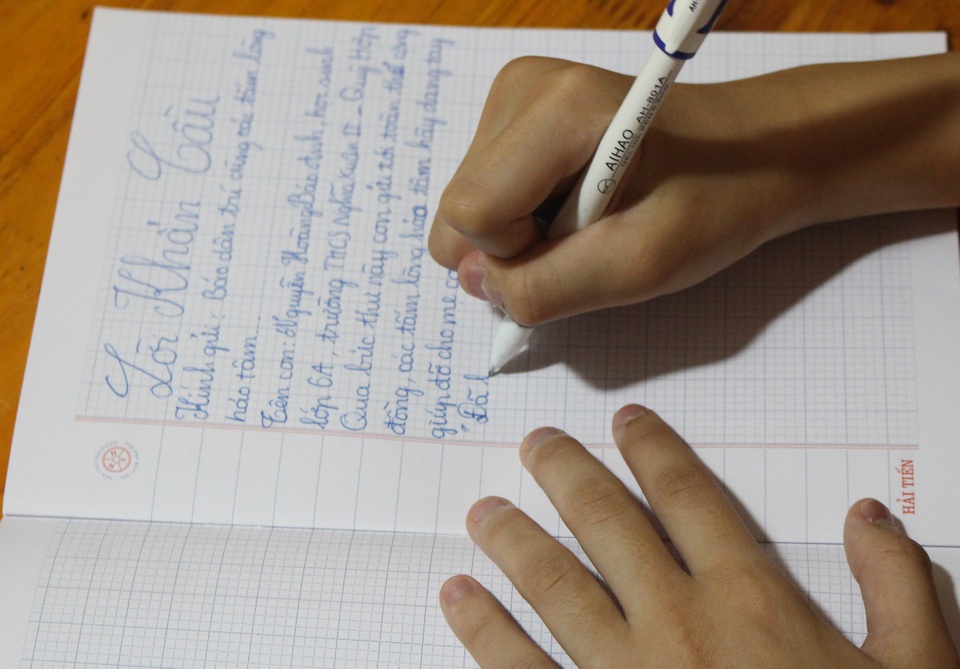 Lời Khẩn Cầu
Kính gửi: Báo dân trí cùng các tấm lòng
hảo tâm...
Tên con: Nguyễn Hoàng Bảo Minh, học sinh
lớp 6A, trường THCS Nghĩa Xuân II - Quỳ Hợp
Qua bức thư này con gửi tới toàn thể cộng
đồng, các tấm lòng hảo tâm hãy dang tay
giúp đỡ cho mẹ
" Đã
HẢI TIẾN
AIHAO AH-801A